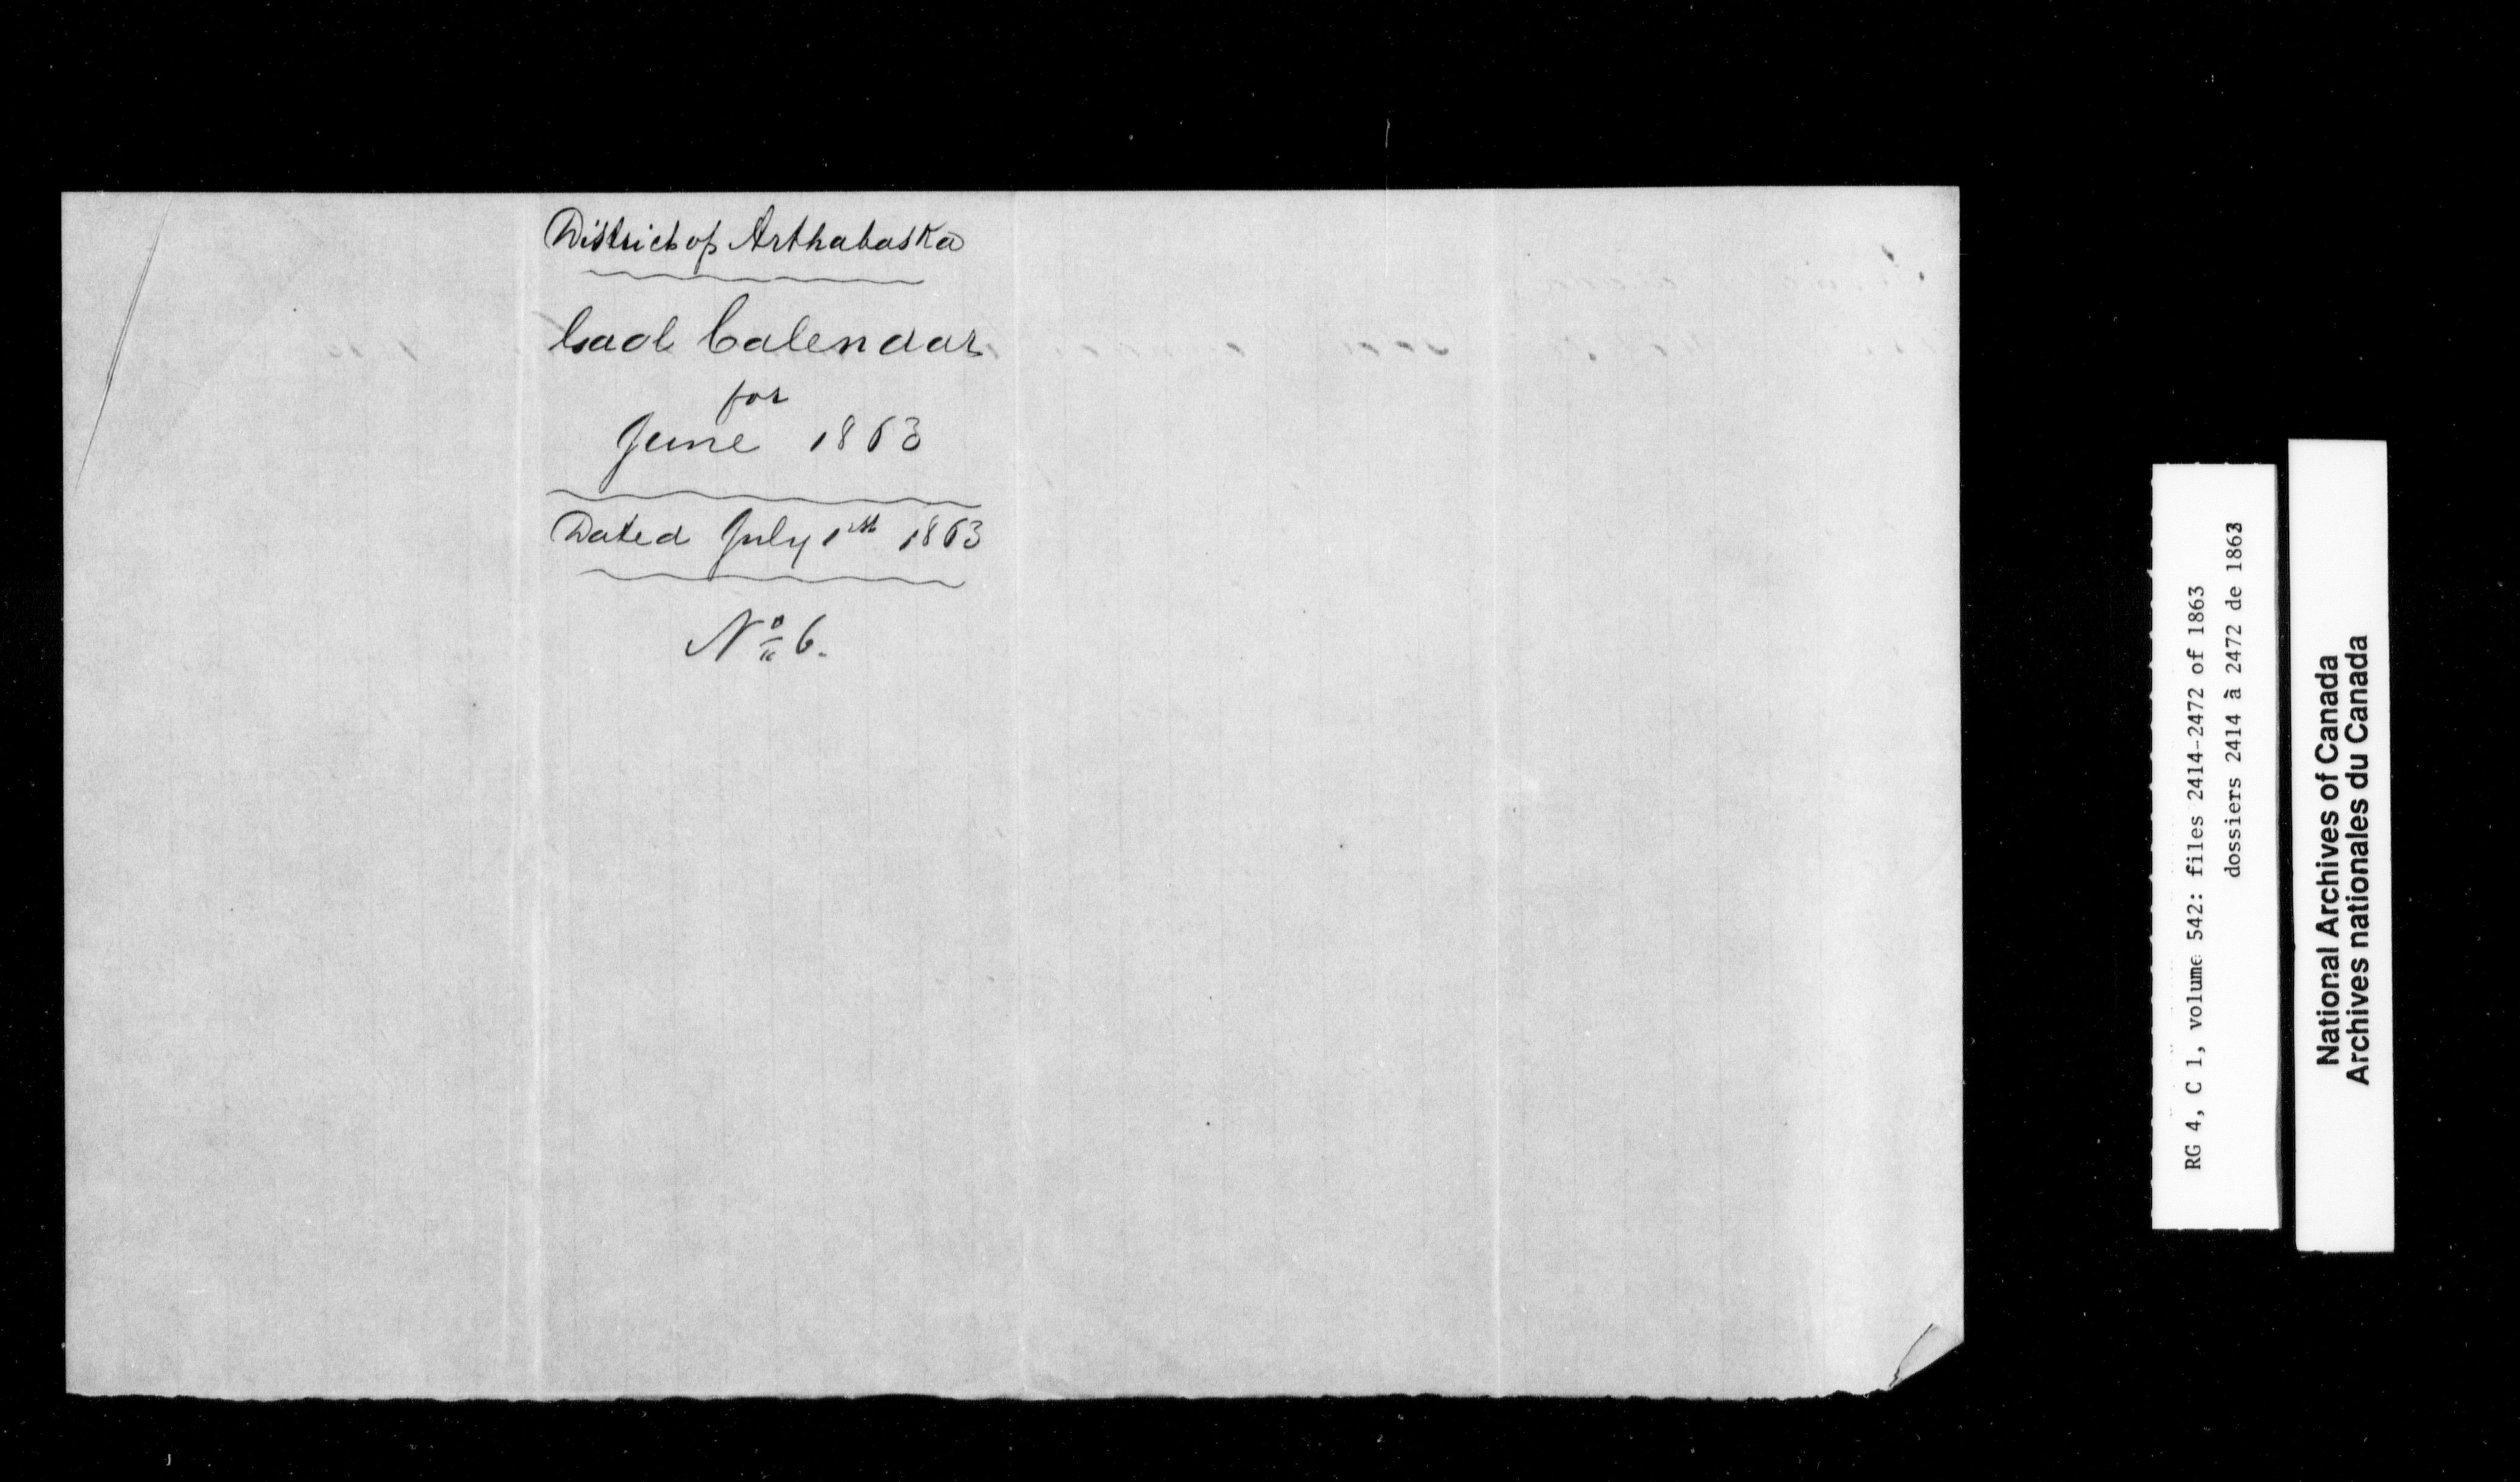 District of Arthabaska
Gaol Calendar
for
June 1863
Dated July 1st 1863
No 6.
RG 4, C 1, volume 542: files 2414-2472 of 1863
dossiers 2414 à 2472 de 1863
National Archives of Canada
Archives nationales du Canada